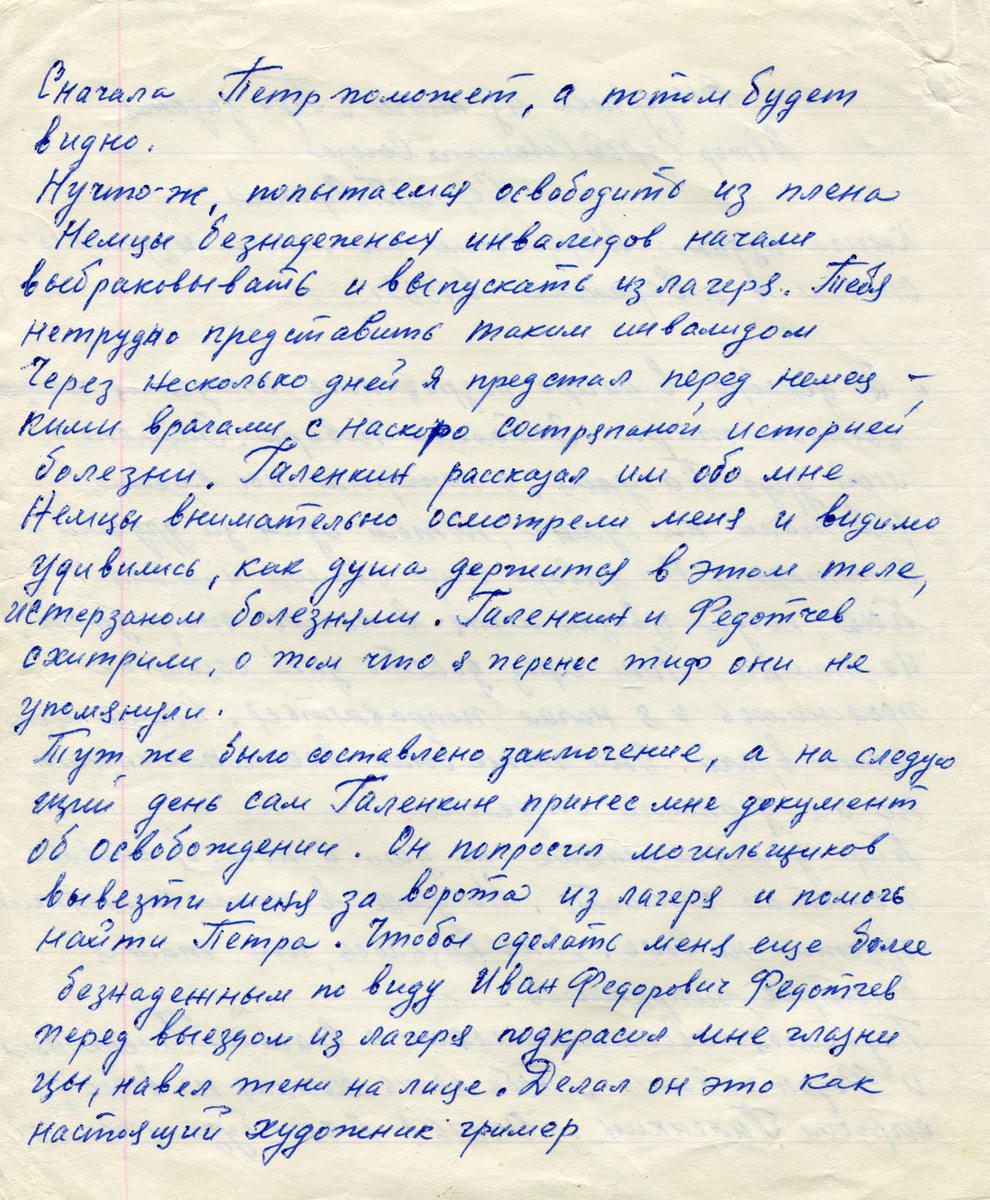 Сначала Петр поможет, а потом будет
видно.
Нучто-ж, попытаемся освободить из плена
Немцы безнадежных инвалидов начали
выбраковывать и выпускать из лагеря. Тебя
нетрудно представить таким инвалидом
Через несколько дней я предстал перед немец-
кими врачами с наскоро состряпаной историей
болезни. Галенкин рассказал им обо мне
Немцы внимательно осмотрели меня и видимо
удивились, как душа держится в этом теле,
истерзаном болезнями. Галенкин и Федотчев
схитрили, о том что я перенес тиф они не
упомянули.
Тут же было составлено заключение, а на следую
щий день сам Галенкин принес мне документ
об освобождении. Он попросил могильщиков
вывезти меня за ворота из лагеря и помочь
найти Петра. Чтобы сделать меня еще более
безнадежным по виду Иван Федорович Федотчев
перед выездом из лагеря подкрасил мне глазни
цы, навел тени на лице. Делал он это как
настоящий художник гример